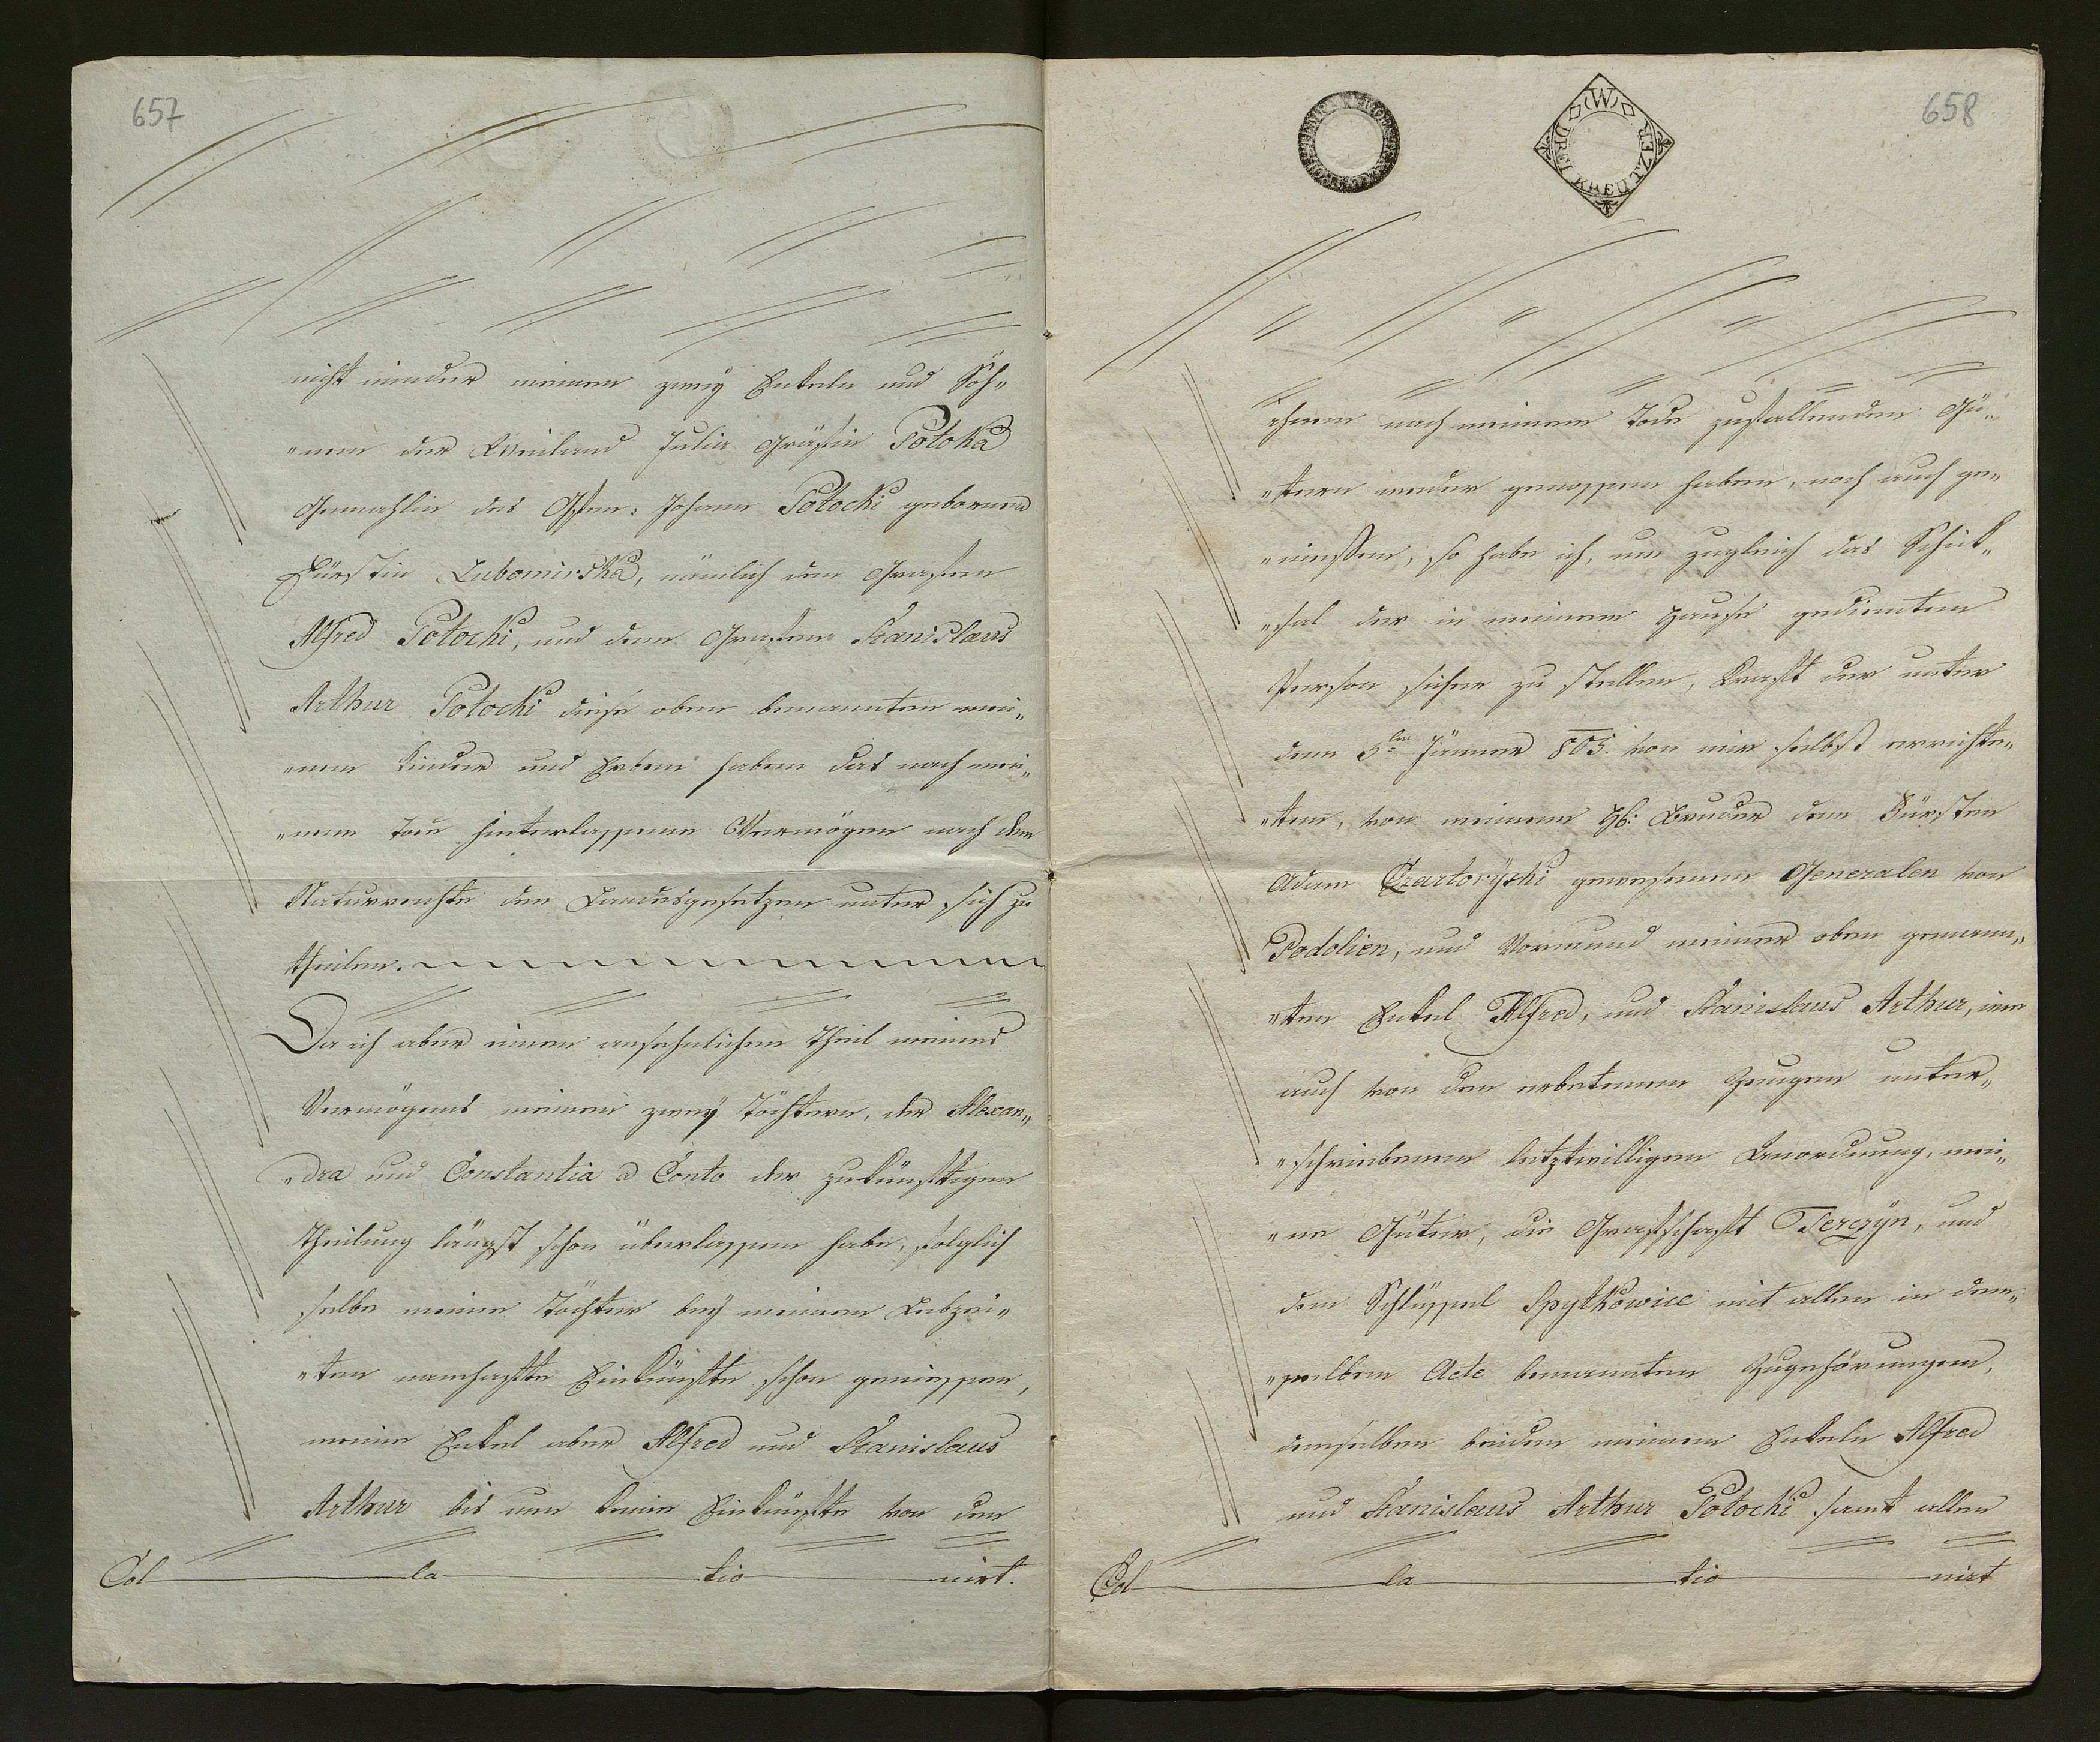 657
nicht minder meinen zwey Enkeln und Söh„
„nen der Weiland Julia Gräfin Potoka
Gemahlin des Grfen: Johann Potocki geborene
Fürstin Lubomirska, nämlich dem Grafen
Alfred Potocki, und dem Grafen Stanislaus
Arthur Potocki diese oben benannten mei„
„nen Kinder und Erben haben das nach mei„
„nem Tode hinterlassene Vermögen nach dem
Naturrechte den Landesgesetzen unter sich zu
theilen.
Da ich aber einen ansehnlichen Theil meines
Vermögens meinen zwey Töchtern, der Alexan„
„dra und Constantia a Conto der zukünftigen
Theilung längst schon überlassen habe, folglich
selbe meine Töchter bey meinen Lebzei„
„ten namhafte Einkünfte schon geniessen,
meine Enkel aber Alfred und Stanislaus
Arthur bis nun keine Einkünfte von den
Col la tio nirt.
658
W
DREI KREUTZER
ihnen nach meinem Tode zufallenden Gü„
„tern weder genossen haben, noch auch ge„
„niessen, so habe ich, um zugleich das Schick„
„sal der in meinem Hause gedienten
Person sicher zu stellen, Kraft der unter
dem 5ten Jänner 805. von mir selbst errichte„
„ten, von meinem H: Bruder dem Fürsten
Adam Czartoryski gewesenen Generalen von
Podolien, und Vormund meiner oben genann„
„ten Enkel Alfred, und Stanislaus Arthur, wie
auch von den erbetenen Zeugen unter„
„schriebenen letztwilligen Anordnung, mei„
„ne Güter, die Grafschaft Tenczyn, und
den Schlüssel Spytkowice mit allen in dem„
„selben Acte benannten Zugehörungen,
denselben beiden meinen Enkeln Alfred
und Stanislaus Arthur Potocki samt allen
Col la tio nirt